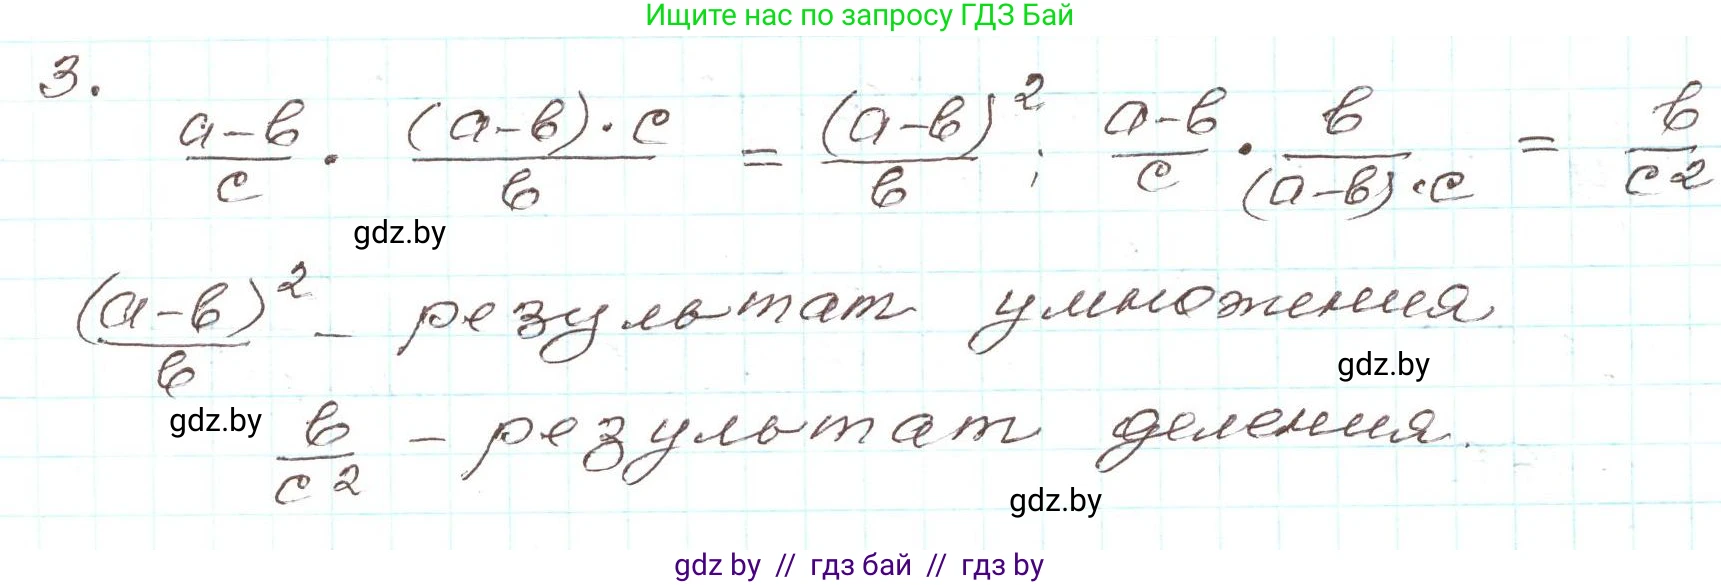 Ищите нас по запросу ГДЗ Бай
3. (a-в)/c · ((a-в)·c)/в = (a-в)²/в ; (a-в)/c · в/((a-в)·c) = в/c²
gdz.by
(a-в)²/в – результат умножения
gdz.by
gdz.by
в/c² – результат деления.
gdz.by
gdz by // гдз бай // гдз by